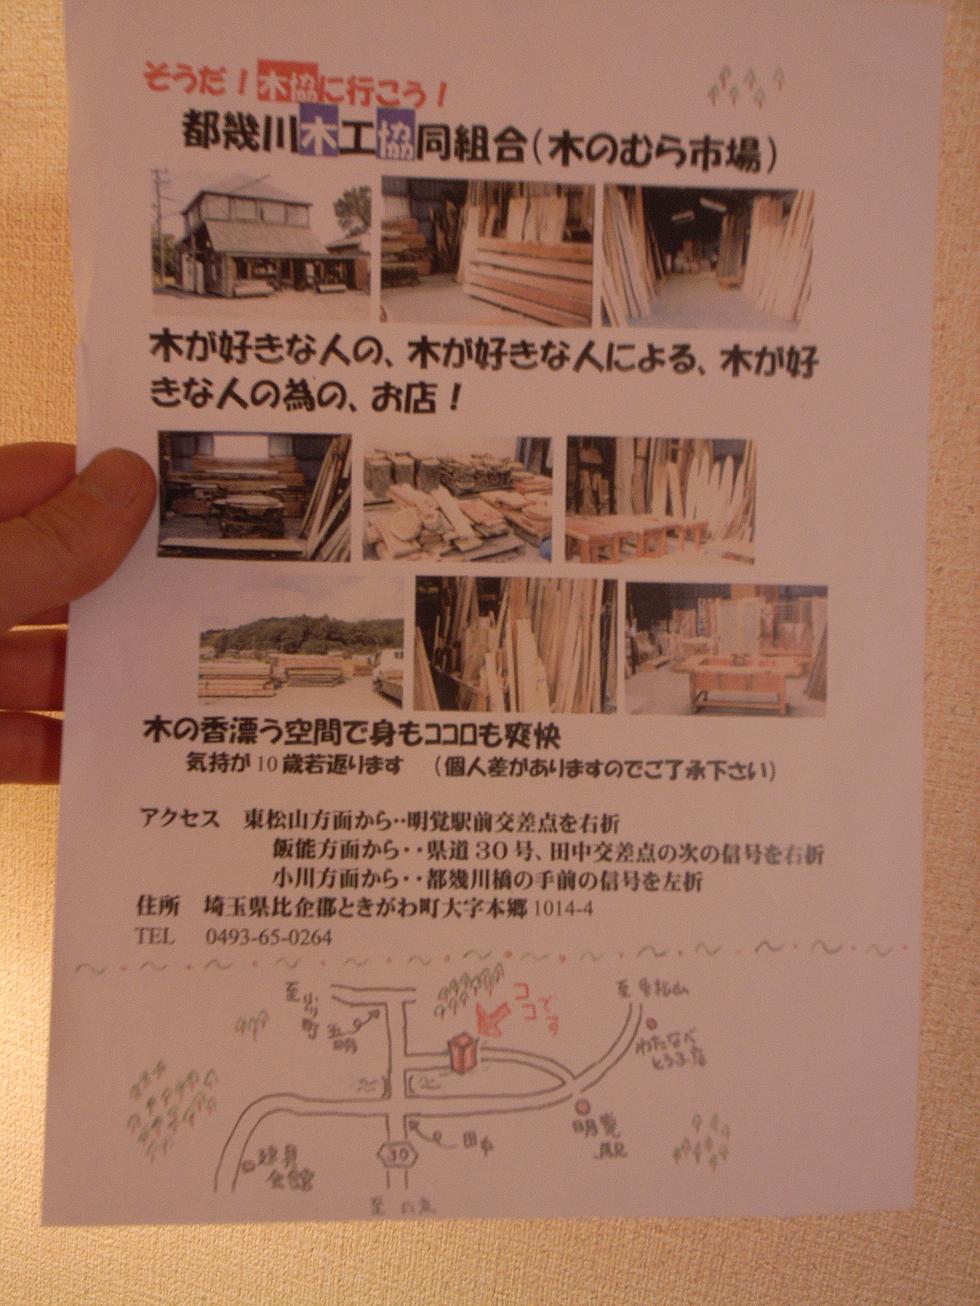 そうだ！木協に行こう！
都幾川木工協同組合（木のむら市場）
木が好きな人の、木が好きな人による、木が好
きな人の為の、お店！
木の香漂う空間で身もココロも爽快
気持が10歳若返ります　（個人差がありますのでご了承下さい）
アクセス　東松山方面から‥明覚駅前交差点を右折
飯能方面から‥県道30号、田中交差点の次の信号を右折
小川方面から‥都幾川橋の手前の信号を左折
住所　埼玉県比企郡ときがわ町大字本郷1014-4
TEL　0493-65-0264
至小川町
五明
ココです
至東松山
わたなべ
とうふ店
明覚駅
田中
30
建具
会館
至